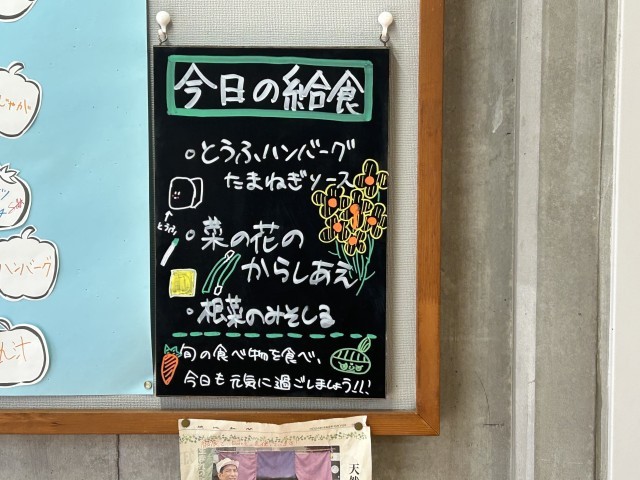 今日の給食
・とうふハンバーグ
たまねぎソース
とうふ
・菜の花の
からしあえ
・根菜のみそしる
旬の食べ物を食べ、
今日も元気に過ごしましょう!!!
ハンバーグ
天然